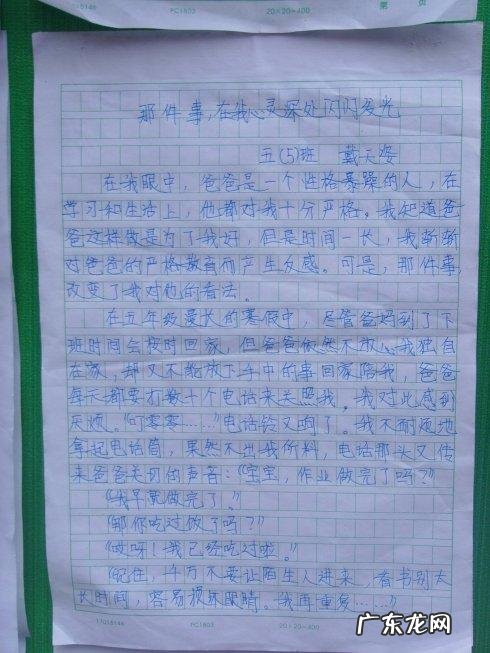 17015146 PC1803 20×20=400 第 页
那件事,在我心灵深处闪闪发光
五(5)班 戴天姿
在我眼中,爸爸是一个性格暴躁的人,在
学习和生活上,他都对我十分严格。我知道爸
爸这样做是为了我好,但是时间一长,我渐渐
对爸爸的严格教育而产生反感。可是,那件事,
改变了我对他的看法。
在五年级漫长的寒假中,尽管爸妈到了下
班时间会按时回家,但爸爸依然不放心我独自
在家,却又不能放下手中的事回家陪我,爸爸
每天都要打数十个电话来关照我,我对此感到
厌烦。“叮零零……”电话铃又响了。我不耐烦地
拿起电话筒,果然不出我所料,电话那头又传
来爸爸关切的声音:“宝宝,作业做完了吗?”
“我早就做完了!”
“那你吃过饭了吗?”
“哎呀!我已经吃过啦。”
“记住,千万不要让陌生人进来,看书别太
长时间,容易损坏眼睛。我再重复……”
17015146 PC1803 20×20=400
广东龙网